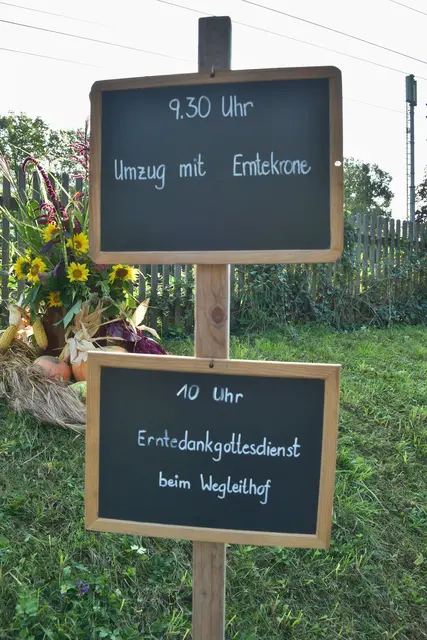 9.30 Uhr
Umzug mit Erntekrone
10 Uhr
Erntedankgottesdienst
beim Wegleithof